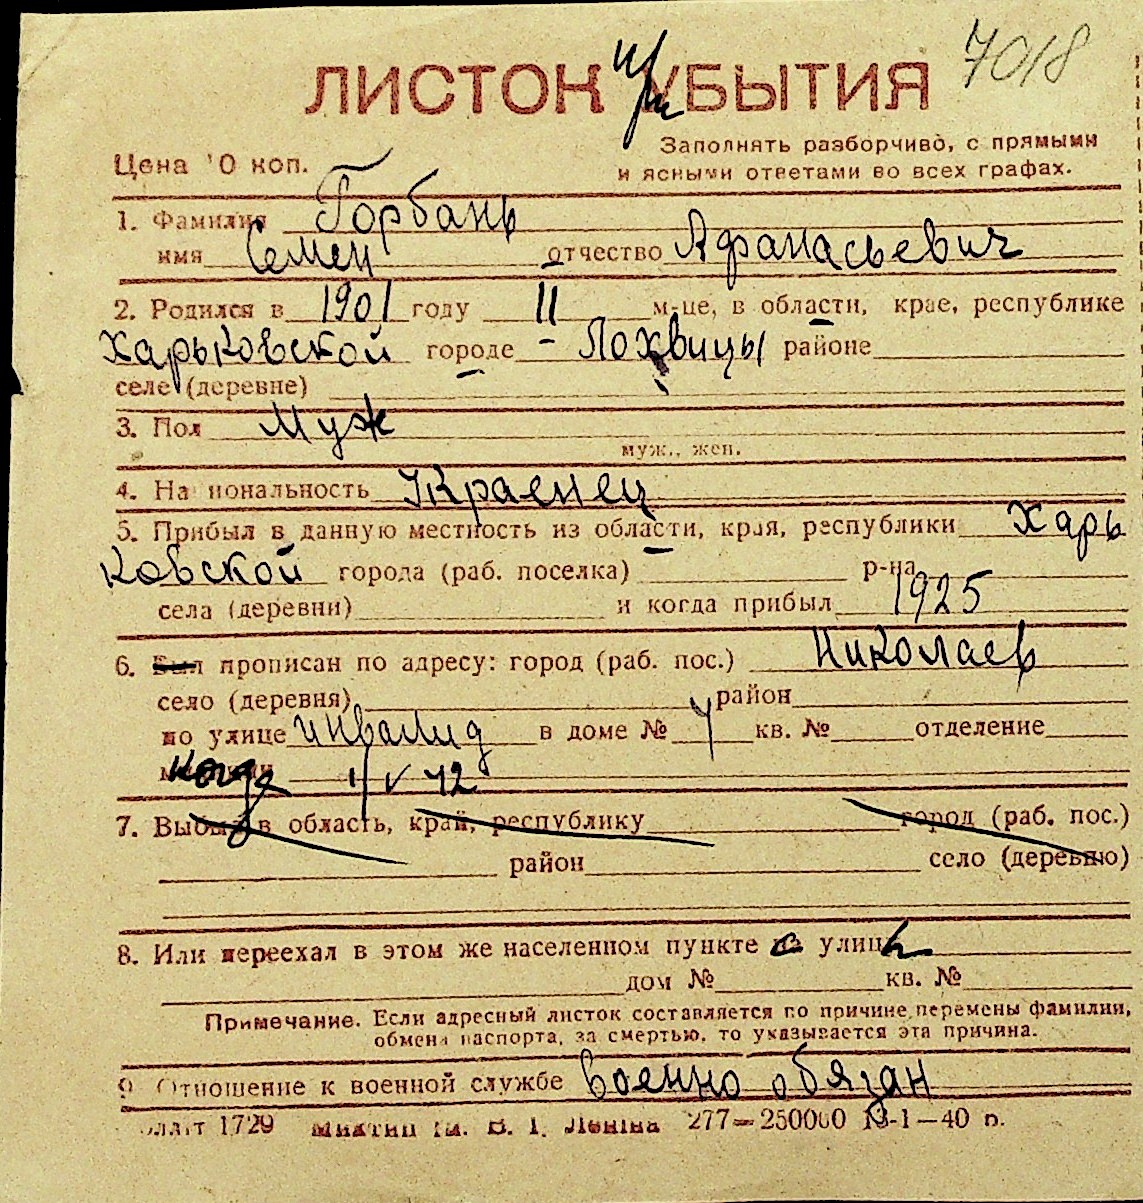 7018
ЛИСТОК УБЫТИЯ
Цена 10 коп.
Заполнять разборчиво, с прямыми
и ясными ответами во всех графах.
1. Фамилия Горбань
имя Семен отчество Афанасьевич
2. Родился в 1901 году II м-це, в области, крае, республике
Харьковской городе - Лохвицы районе
селе (деревне)
3. Пол Муж
муж., жен.
4. Национальность Украенец
5. Прибыл в данную местность из области, края, республики Харь
ковской города (раб. поселка) р-на
села (деревни) и когда прибыл 1925
6. Был прописан по адресу: город (раб. пос.) Николаев
село (деревня) район
по улице инвалид в доме № 4 кв. № отделение
когда 42
7. Выбыл в область, край, республику город (раб. пос.)
район село (деревню)
8. Или переехал в этом же населенном пункте с улицы
дом № кв. №
Примечание. Если адресный листок составляется по причине перемены фамилии,
обмена паспорта, за смертью, то указывается эта причина.
9 Отношение к военной службе военно обязан
1729 В. І. Леніна 277—250000 13-1—40 р.